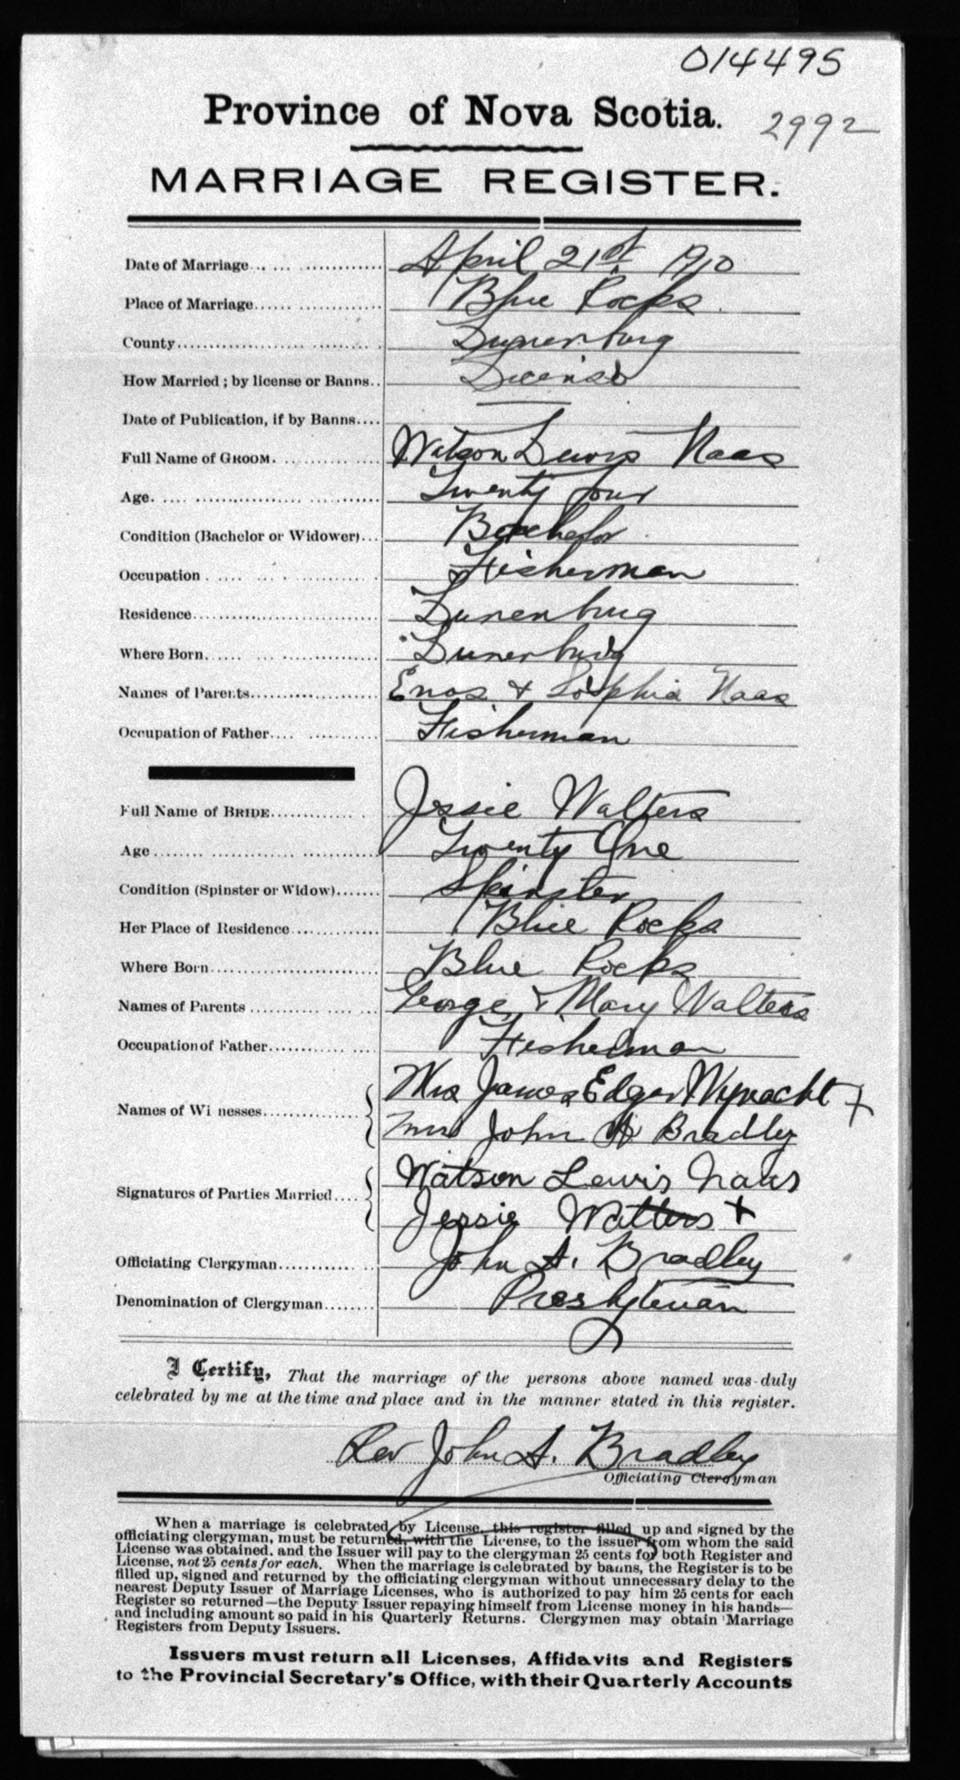 014495
Province of Nova Scotia.
2992
MARRIAGE REGISTER.
Date of Marriage April 21st 1910
Place of Marriage Blue Rocks
County Lunenburg
How Married; by license or Banns License
Date of Publication, if by Banns
Full Name of GROOM. Watson Lewis Naas
Age. Twenty four
Condition (Bachelor or Widower) Bachelor
Occupation Fisherman
Residence Lunenburg
Where Born Lunenburg
Names of Parents Enos & Sophia Naas
Occupation of Father Fisherman
Full Name of BRIDE Jessie Walters
Age Twenty One
Condition (Spinster or Widow) Spinster
Her Place of Residence Blue Rocks
Where Born Blue Rocks
Names of Parents George & Mary Walters
Occupation of Father Fisherman
Names of Witnesses Mrs James Edgar Wynacht +
Mrs John A Bradley
Signatures of Parties Married Watson Lewis Naas
Jessie Walters +
Officiating Clergyman John A. Bradley
Denomination of Clergyman Presbyterian
I Certify, That the marriage of the persons above named was duly
celebrated by me at the time and place and in the manner stated in this register.
Rev John A. Bradley
Officiating Clergyman
When a marriage is celebrated by License, this register filled up and signed by the
officiating clergyman, must be returned, with the License, to the issuer from whom the said
License was obtained, and the Issuer will pay to the clergyman 25 cents for both Register and
License, not 25 cents for each. When the marriage is celebrated by banns, the Register is to be
filled up, signed and returned by the officiating clergyman without unnecessary delay to the
nearest Deputy Issuer of Marriage Licenses, who is authorized to pay him 25 cents for each
Register so returned—the Deputy Issuer repaying himself from License money in his hands—
and including amount so paid in his Quarterly Returns. Clergymen may obtain Marriage
Registers from Deputy Issuers.
Issuers must return all Licenses, Affidavits and Registers
to the Provincial Secretary's Office, with their Quarterly Accounts